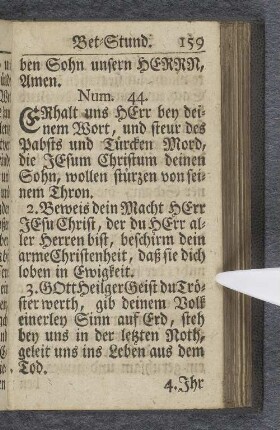 Bet-Stund. 159
ben Sohn unsern HERRN,
Amen.
Num. 44.
ERhalt uns HErr bey dei-
nem Wort, und steur des
Pabsts und Türcken Mord,
die JEsum Christum deinen
Sohn, wollen stürzen von sei-
nem Thron.
2. Beweis dein Macht HErr
JEsu Christ, der du HErr al-
ler Herren bist, beschirm dein
arme Christenheit, daß sie dich
loben in Ewigkeit.
3. GOtt Heilger Geist du Trö-
ster werth, gib deinem Volk
einerley Sinn auf Erd, steh
bey uns in der letzten Noth,
geleit uns ins Leben aus dem
Tod.
4. Ihr